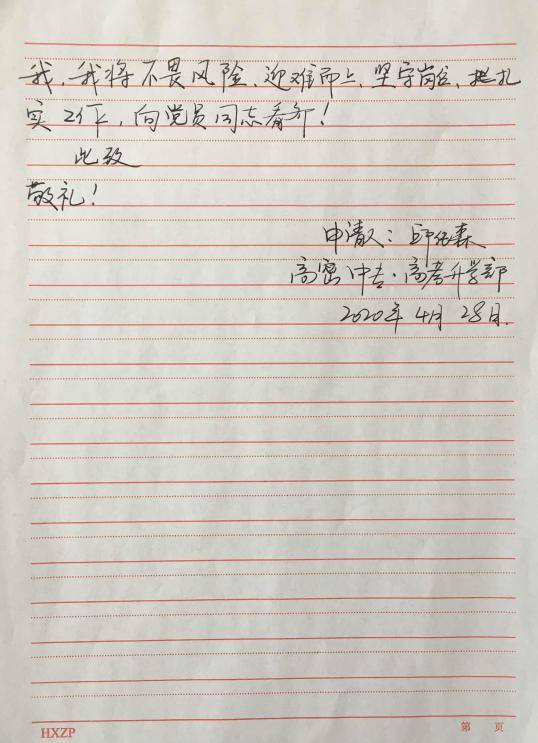 我，我将不畏风险、迎难而上、坚守岗位、扎
实工作，向党员同志看齐！
此致
敬礼！
申请人：邱 森
高密中专·高考升学部
2020年4月28日.
HXZP
第 页